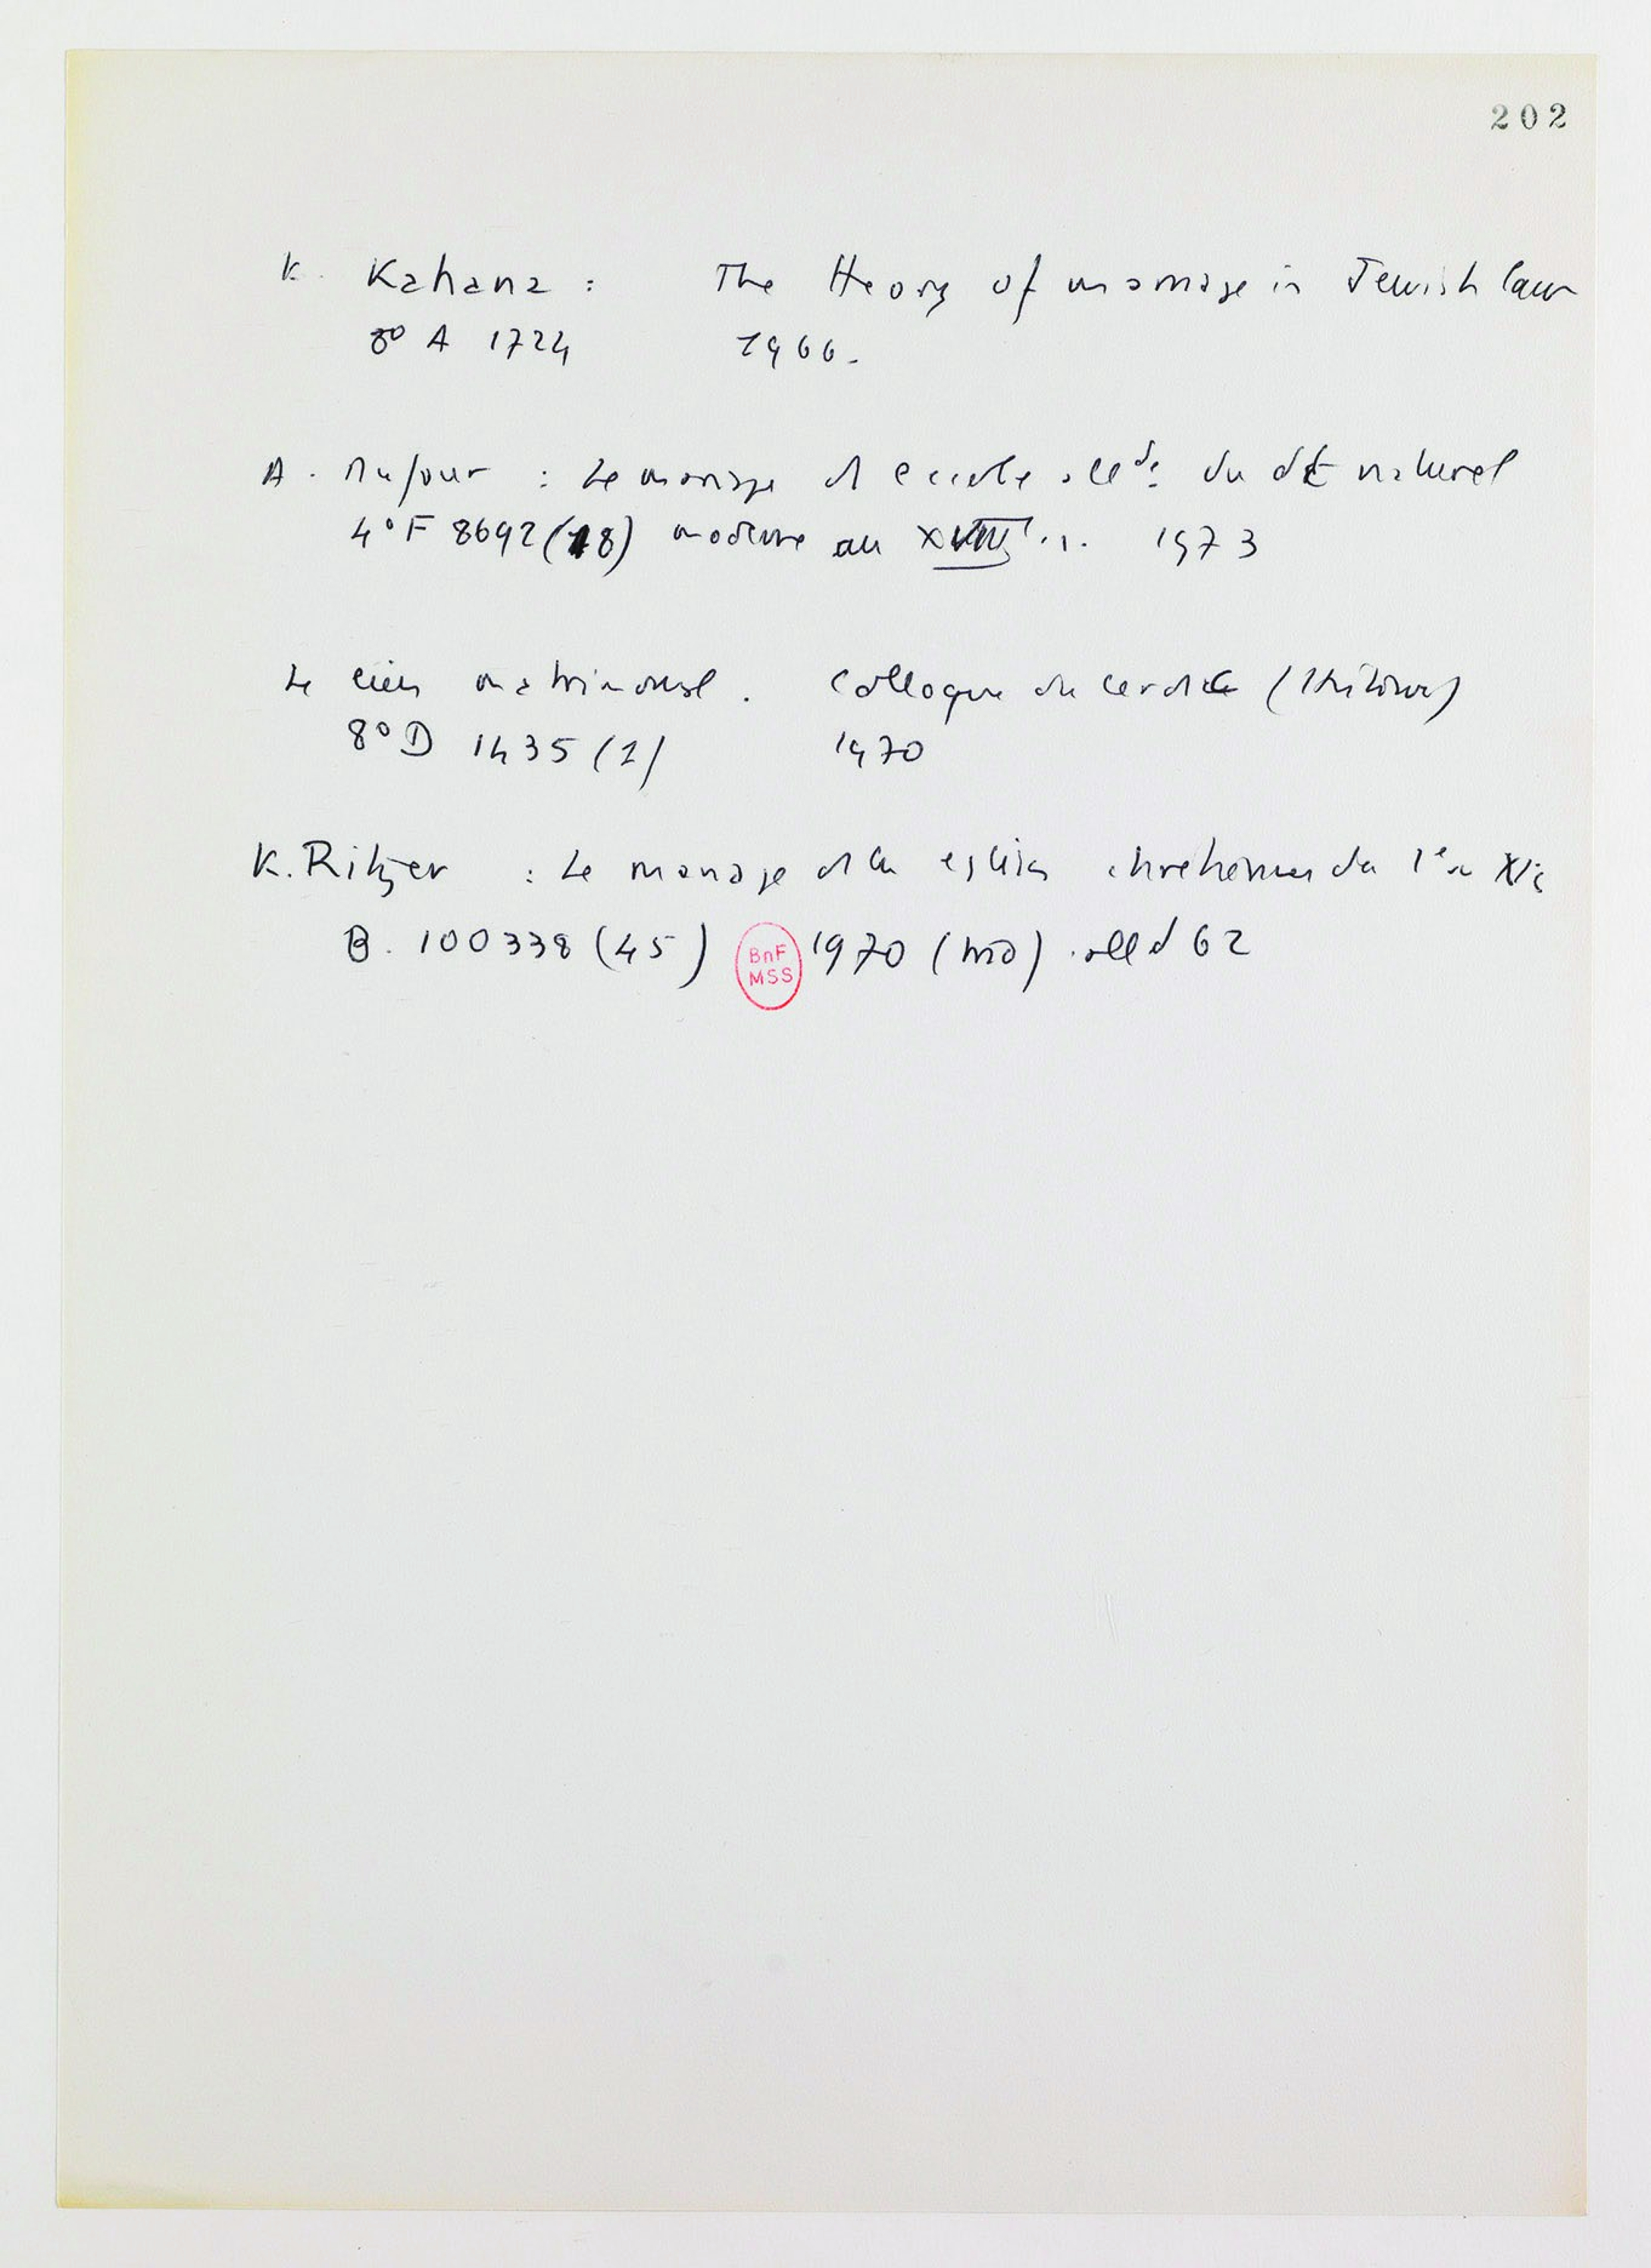 202
K. Kahana : The theory of marriage in Jewish law
8° A 1724 1966.
A. Dufour : Le mariage ds l'ecole allde du dt naturel
4° F 8692 (18) moderne au XVIII s. 1973
Le lien matrimonial. Colloque du Cerdic
8° D 1435 (1) 1970
K. Ritzer : Le mariage ds les eglises chretiennes du 1e au XIe
B. 100338 (45) 1970 (trad) alld 62
BnF
MSS